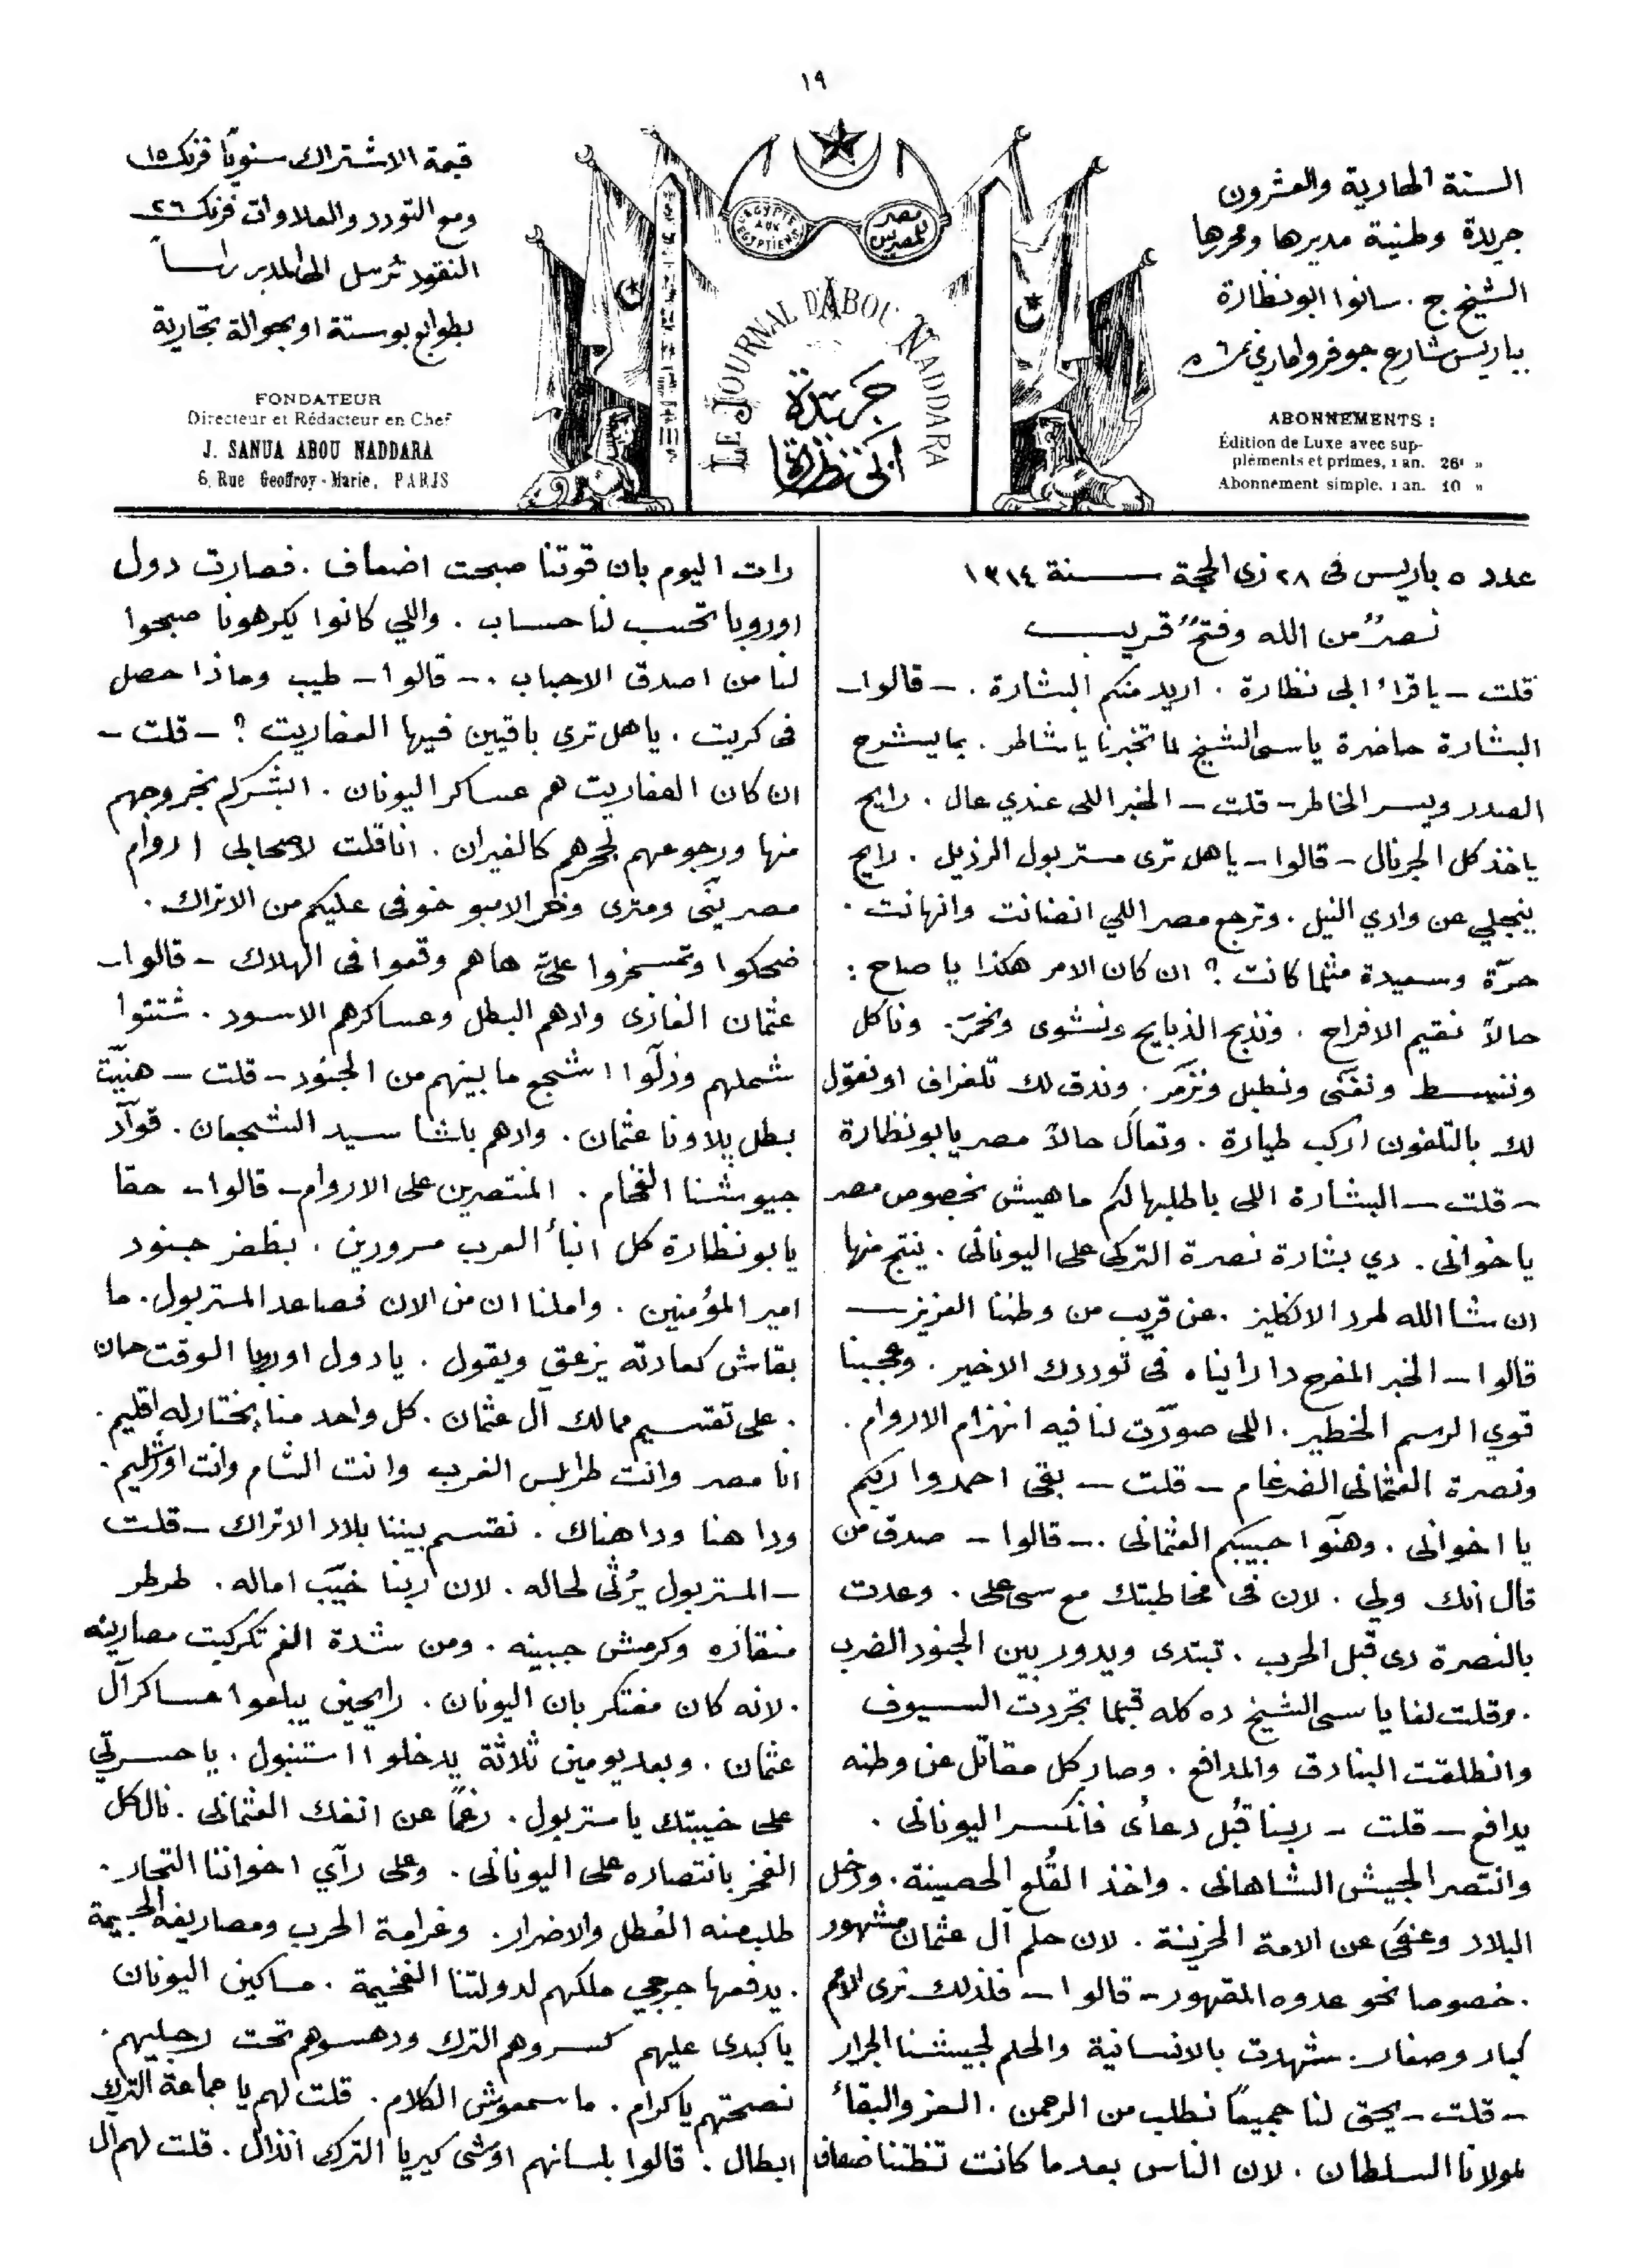 ١٩
السنة الحادية والعشرون
جريدة وطنية مديرها ومحررها
الشيخ ج. سانوا ابو نظارة
بباريس شارع جوفروا ماري نمرة ٦
ABONNEMENTS :
Édition de Luxe avec sup-
pléments et primes, 1 an. 26f »
Abonnement simple. 1 an. 10 »
EGYPTE AUX EGYPTIENS
مصر للمصريين
LE JOURNAL D'ABOU NADDARA
جريدة
ابى نظارة
قيمة الاشتراك سنويًا فرنك ١٥
ومع التودد والعلاوات فرنك ٢٦
النقود ترسل الى المدير راساً
بطوابع بوستة او بحوالة تجارية
FONDATEUR
Directeur et Rédacteur en Chef
J. SANUA ABOU NADDARA
6, Rue Geoffroy-Marie, PARIS
عدد ٥ باريس فى ٢٨ ذى الحجة سنة ١٣١٤
نصرٌ من الله وفتحٌ قريب
قلت – يا قراء ابى نظارة . اريد منكم البشارة . – قالوا –
البشارة حاضرة يا سى الشيخ لما تخبرنا يا شاطر . بما يشرح
الصدر ويسر الخاطر – قلت – الخبر اللى عندي عال . رايح
ياخذ كل الجرنال – قالوا – يا هل ترى مستر بول الرذيل . رايح
ينجلي عن وادي النيل . وترجع مصر اللي انضانت وانهانت .
حرّة وسعيدة مثلما كانت ؟ ان كان الامر هكذا يا صاح :
حالاً نقيم الافراح . ونذبح الذبايح ونشوى ونخمّر . وناكل
وننبسط ونغنّى ونطبل ونزمّر . وندق لك تلغراف او نقول
لك بالتلفون اركب طيارة . وتعالَ حالاً مصر يا بو نظارة
– قلت – البشارة اللى باطلبها لكم ما هيش بخصوص مصر
يا خوانى . دي بشارة نصرة التركى على اليونانى . ينتج منها
ان شا الله طرد الانكليز . عن قريب من وطننا العزيز –
قالوا – الخبر المفرح دا رايناه فى توددك الاخير . وعجبنا
قوي الرسم الخطير . اللى صوّرت لنا فيه انهزام الاروام .
ونصرة العثمانى الضرغام – قلت – بقى احمدوا ربكم
يا اخوانى . وهنّوا حبيبكم العثمانى . – قالوا – صدق من
قال انك ولي . لان فى مخاطبتك مع سى على . وعدت
بالنصرة دى قبل الحرب . تبتدى ويدور بين الجنود الضرب
. وقلت لنا يا سى الشيخ ده كله قبلما تجردت السيوف
وانطلقت البنادق والمدافع . وصار كل مقاتل عن وطنه
يدافع – قلت – ربنا قبُل دعاىْ فانكسر اليونانى .
وانتصر الجيش الشاهانى . واخذ القُلع الحصينة . ودخل
البلاد وعفى عن الامة الحزينة . لان حلم آل عثمان مشهور
. خصوصا نحو عدوه المقهور – قالوا – فلذلك نرى الامم
كبار وصغار . شهدت بالانسانية والحلم لجيشنا الجرار
– قلت – يحق لنا جميعاً نطلب من الرحمن . العز والبقاء
لمولانا السلطان . لان الناس بعد ما كانت تظننا ضعاف
رات اليوم بان قوتنا صبحت اضعاف . فصارت دول
اوروبا تحسب لنا حساب . واللي كانوا يكرهونا صبحوا
لنا من اصدق الاحباب . – قالوا – طيب وماذا حصل
فى كريت . يا هل ترى باقيين فيها العفاريت ؟ – قلت –
ان كان العفاريت هم عساكر اليونان . ابشركم بخروجهم
منها ورجوعهم لجحرهم كالفيران . انا قلت لاصحابى اروام
مصر ينّى ومترى وخر الامبو خوفى عليكم من الاتراك .
ضحكوا وتمسخروا علىّ ها هم وقعوا فى الهلاك – قالوا –
عثمان الغازى وادهم البطل وعساكرهم الاسود . شتتوا
شملهم وذلّوا اشجع ما بينهم من الجنود – قلت – هنيّت
بطل پلاونا عثمان . وادهم باشا سيد الشجعان . قوّاد
جيوشنا الفخام . المنتصرين على الاروام – قالوا – حقا
يا بو نظارة كل ابنأ العرب مسرورين . بظفر جنود
امير المؤمنين . واملنا ان من الان فصاعد المستر بول . ما
بقاش كعادته يزعق ويقول . يا دول اوربا الوقت حان
. على تقسيم ممالك آل عثمان . كل واحد منا يختار له اقليم .
انا مصر وانت طرابلس الغرب وانت الشام وانت اورشليم .
ودا هنا ودا هناك . نقتسم بيننا بلاد الاتراك – قلت
– المستر بول يُرثى لحاله . لان ربنا خيّب اماله . طرطر
منقاره وكرمش جبينه . ومن شدة الغم تكركبت مصارينه
. لانه كان مفتكر بان اليونان . رايحين يبلعوا عساكر آل
عثمان . وبعد يومين ثلاثة يدخلوا استنبول . يا حسرتي
على خيبتك يا مستر بول . رغماً عن انفك العثمانى . نال كل
الفخر بانتصاره على اليونانى . وعلى رآي اخواننا التجار .
طلب منه العُطل والاضرار . وغرامة الحرب ومصاريفه الجسيمة
. يدفعها جرجى ملكهم لدولتنا الفخيمة . مساكين اليونان
يا كبدى عليهم كسروهم الترك ودهسوهم تحت رجليهم .
نصحتهم يا كرام . ما سمعوش الكلام . قلت لهم يا جماعة الترك
ابطال . قالوا بلسانهم اوشى كيريا الترك انذال . قلت لهم آل